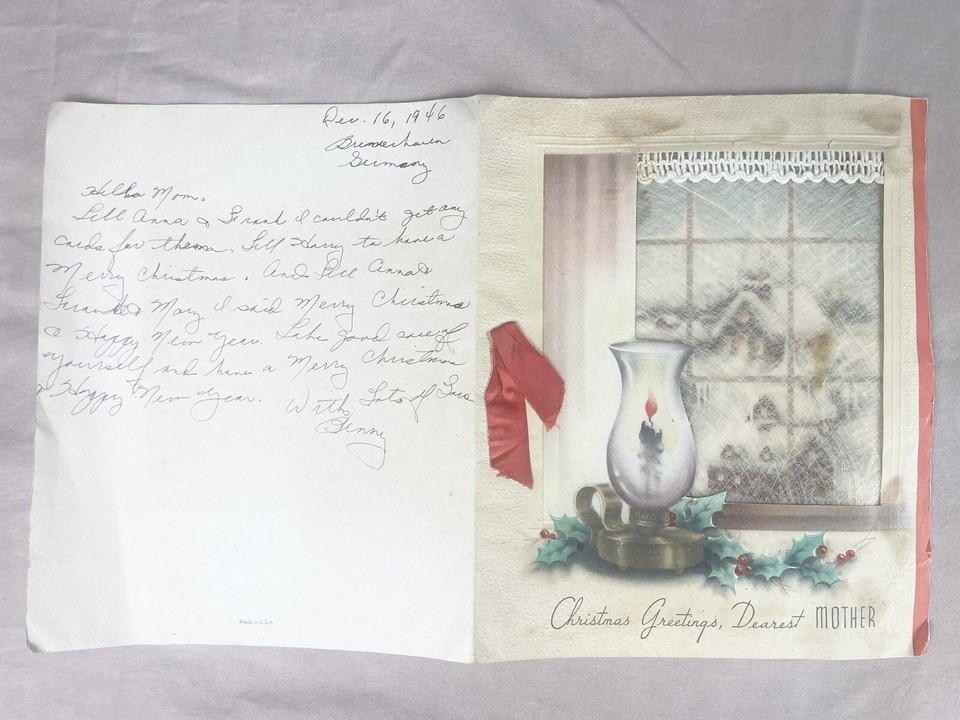 Dec. 16, 1946
Bremerhaven
Germany
Hello Mom,
Tell Anna & Frank I couldn't get any
cards for them. Tell Harry to have a
Merry Christmas. And Tell Anna &
Frank & Mary I said Merry Christmas
& Happy New Year. Take good care of
yourself and have a Merry Christmas
& Happy New Year. With Lots of Love
Benny
Made in U.S.A.
Christmas Greetings, Dearest MOTHER